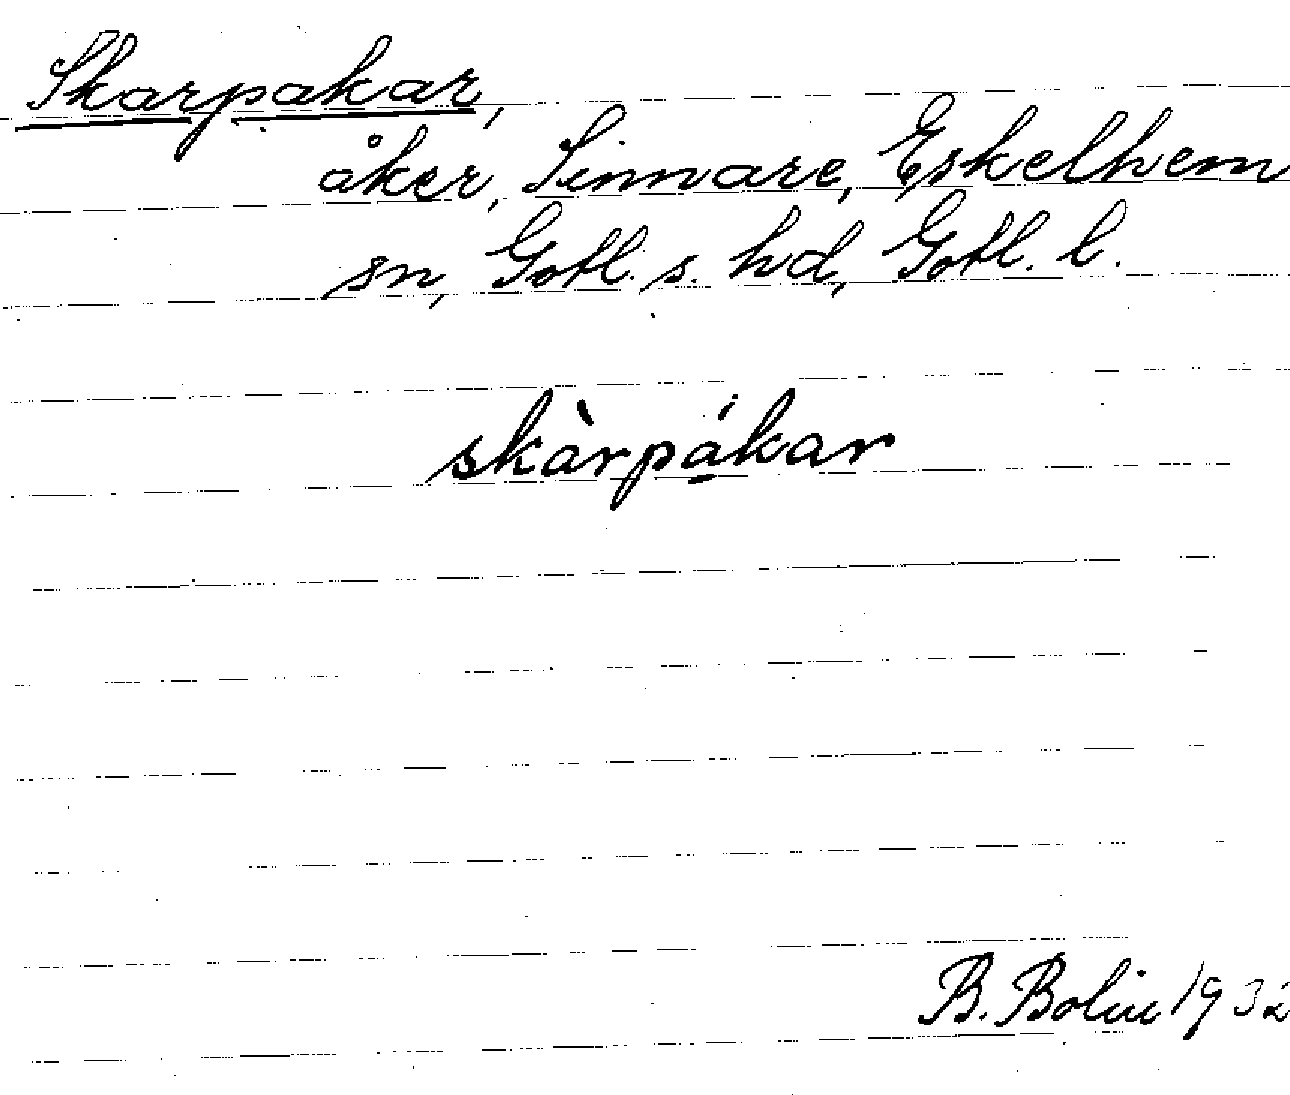 Skarpakar,
åker, Sinnare, Eskelhem
sn, Gotl. s. hd, Gotl. l.
skàrpá̱kar
B. Bolin 1932